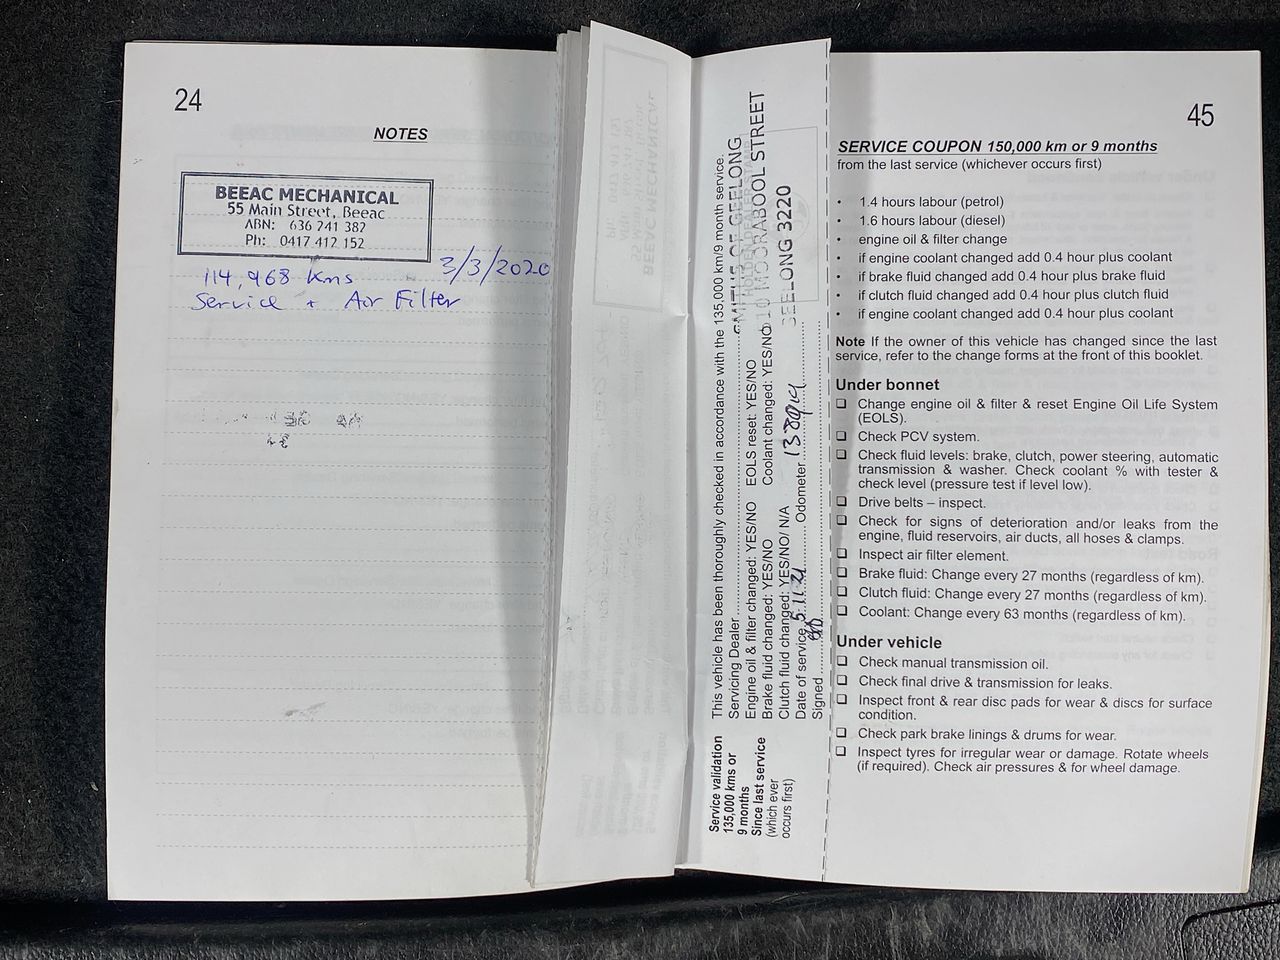 24
NOTES
BEEAC MECHANICAL
55 Main Street, Beeac
ABN: 636 741 382
Ph: 0417 412 152
3/3/2020
114,968 Kms
Service + Air Filter
Service validation
135,000 kms or
9 months
Since last service
(which ever
occurs first)
This vehicle has been thoroughly checked in accordance with the 135,000 km/9 month service.
Servicing Dealer SMITHS OF GEELONG
Engine oil & filter changed: YES/NO EOLS reset: YES/NO
Brake fluid changed: YES/NO Coolant changed: YES/NO
MOORABOOL STREET
Clutch fluid changed: YES/NO/ N/A
GEELONG 3220
Date of service 5.11.21 Odometer
Signed
45
SERVICE COUPON 150,000 km or 9 months
from the last service (whichever occurs first)
• 1.4 hours labour (petrol)
• 1.6 hours labour (diesel)
• engine oil & filter change
• if engine coolant changed add 0.4 hour plus coolant
• if brake fluid changed add 0.4 hour plus brake fluid
• if clutch fluid changed add 0.4 hour plus clutch fluid
• if engine coolant changed add 0.4 hour plus coolant
Note If the owner of this vehicle has changed since the last
service, refer to the change forms at the front of this booklet.
Under bonnet
❑ Change engine oil & filter & reset Engine Oil Life System
(EOLS).
❑ Check PCV system.
❑ Check fluid levels: brake, clutch, power steering, automatic
transmission & washer. Check coolant % with tester &
check level (pressure test if level low).
❑ Drive belts – inspect.
❑ Check for signs of deterioration and/or leaks from the
engine, fluid reservoirs, air ducts, all hoses & clamps.
❑ Inspect air filter element.
❑ Brake fluid: Change every 27 months (regardless of km).
❑ Clutch fluid: Change every 27 months (regardless of km).
❑ Coolant: Change every 63 months (regardless of km).
Under vehicle
❑ Check manual transmission oil.
❑ Check final drive & transmission for leaks.
❑ Inspect front & rear disc pads for wear & discs for surface
condition.
❑ Check park brake linings & drums for wear.
❑ Inspect tyres for irregular wear or damage. Rotate wheels
(if required). Check air pressures & for wheel damage.